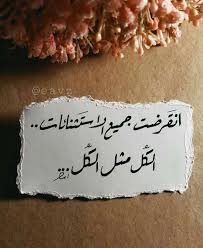 @eavz
انقرضت جميع الاستثنائات ..
الكل مثل الكل ..